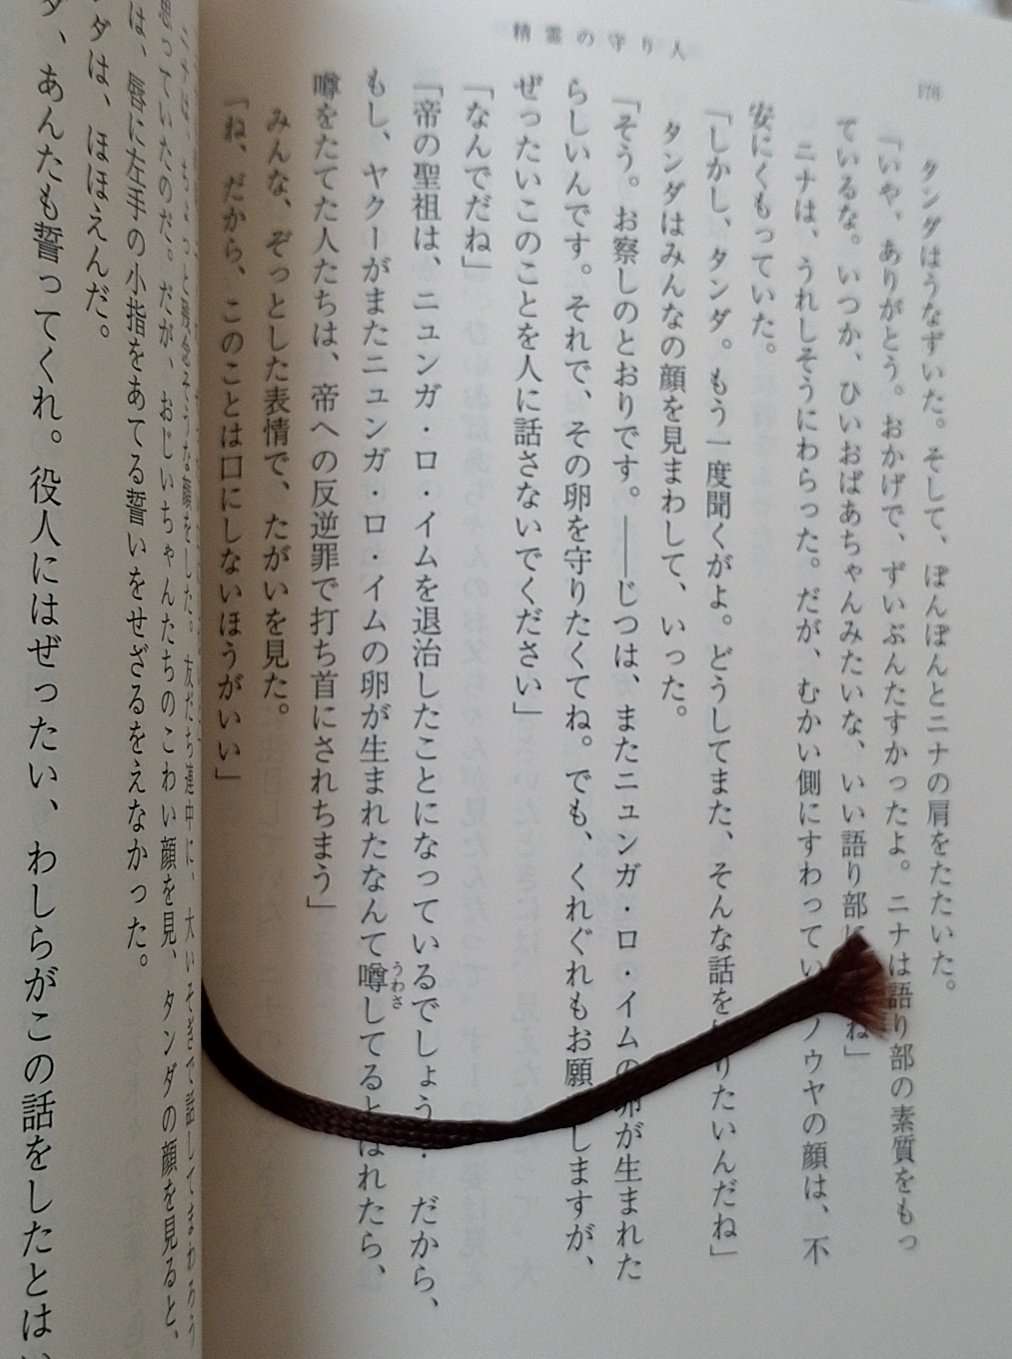 176
精霊の守り人
タンダはうなずいた。そして、ぽんぽんとニナの肩をたたいた。
「いや、ありがとう。おかげで、ずいぶんたすかったよ。ニナは語り部の素質をもっ
ているな。いつか、ひいおばあちゃんみたいな、いい語り部に ね」
ニナは、うれしそうにわらった。だが、むかい側にすわってい ノウヤの顔は、不
安にくもっていた。
「しかし、タンダ。もう一度聞くがよ。どうしてまた、そんな話を りたいんだね」
タンダはみんなの顔を見まわして、いった。
「そう。お察しのとおりです。――じつは、またニュンガ・ロ・イムの卵が生まれた
らしいんです。それで、その卵を守りたくてね。でも、くれぐれもお願 しますが、
ぜったいこのことを人に話さないでください」
「なんでだね」
「帝の聖祖は、ニュンガ・ロ・イムを退治したことになっているでしょう 。だから、
もし、ヤクーがまたニュンガ・ロ・イムの卵が生まれたなんて噂してると ばれたら、
うわさ
噂をたてた人たちは、帝への反逆罪で打ち首にされちまう」
みんな、ぞっとした表情で、たがいを見た。
「ね、だから、このことは口にしないほうがいい」
ニナは、ちょっと残念そうな顔をした。友だち連中に、大いそぎで話してまわろう
思っていたのだ。だが、おじいちゃんたちのこわい顔を見、タンダの顔を見ると、
は、唇に左手の小指をあてる誓いをせざるをえなかった。
ダは、ほほえんだ。
ダ、あんたも誓ってくれ。役人にはぜったい、わしらがこの話をしたとはい